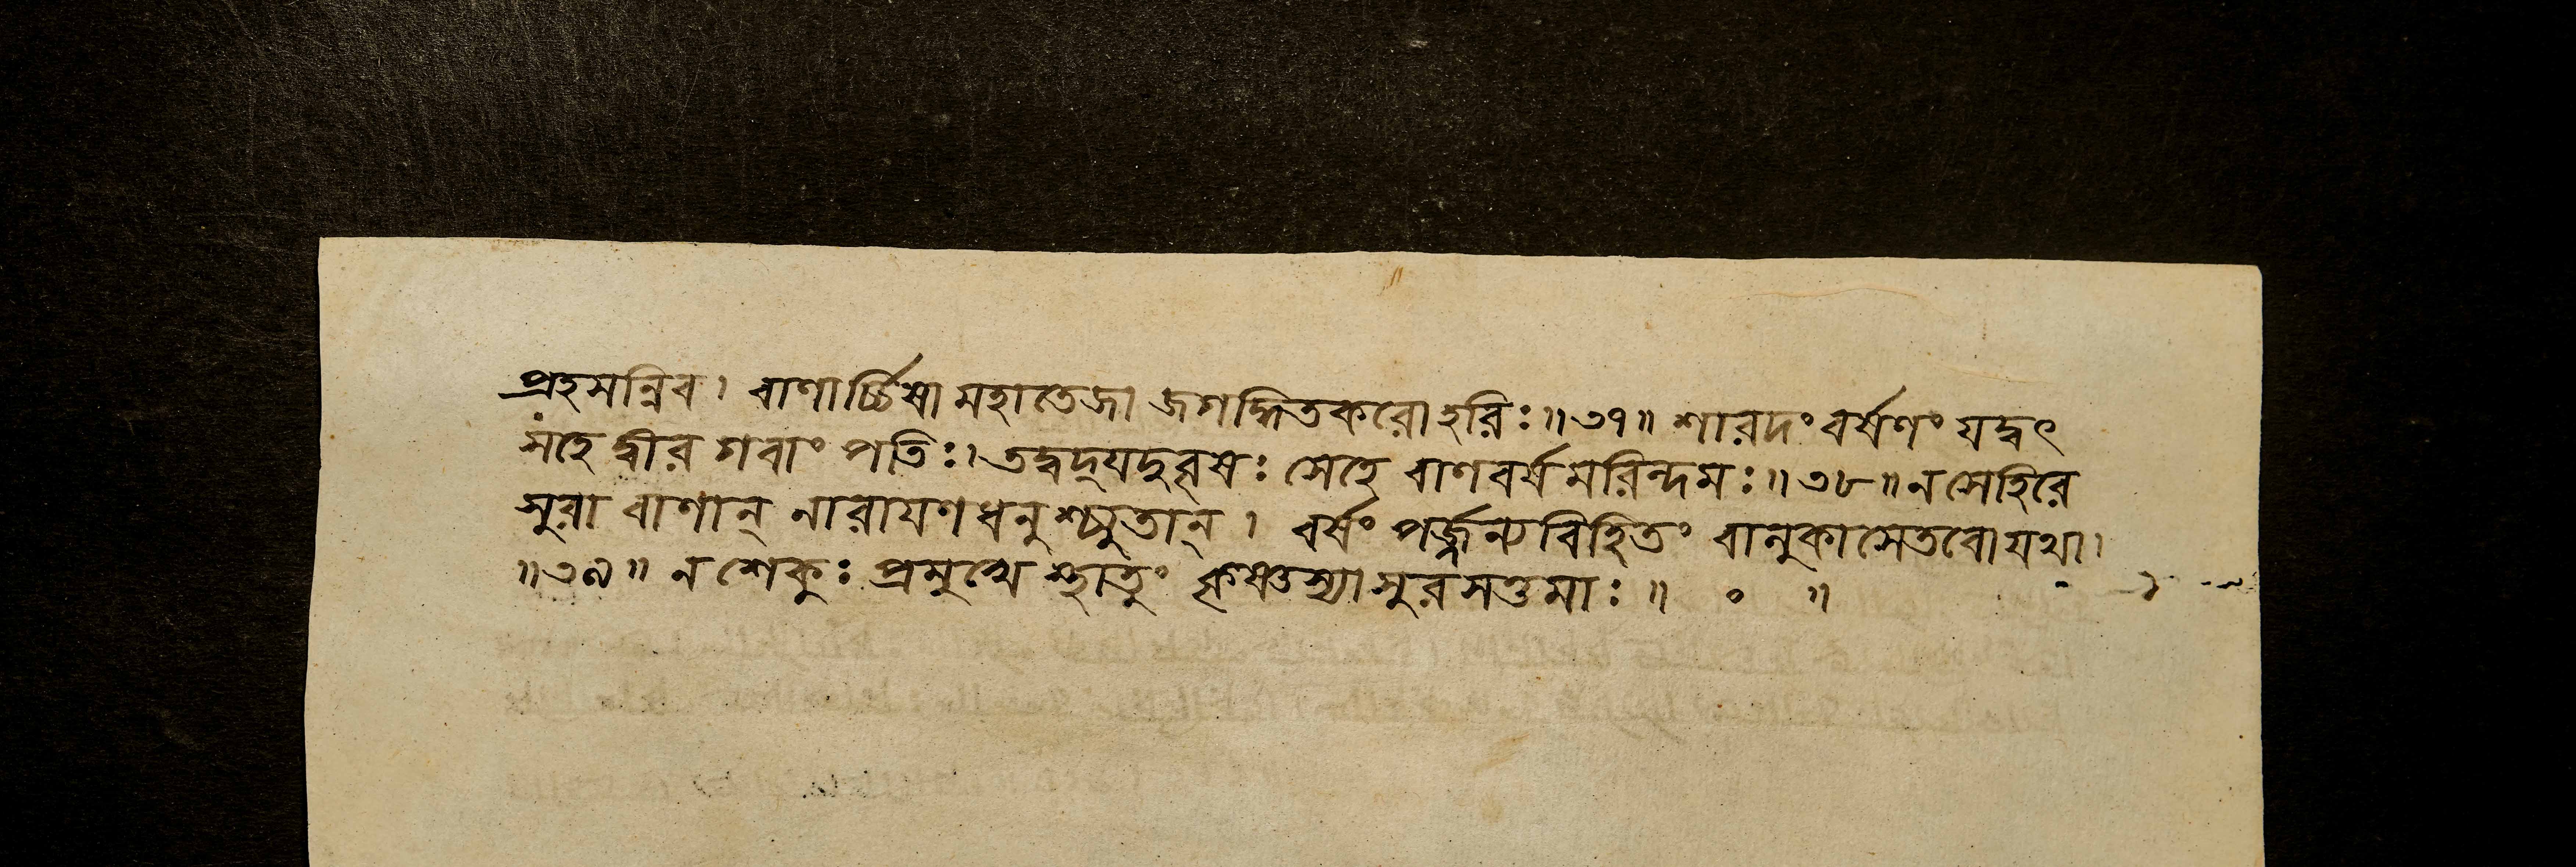 প্রহসন্নিব। বাণার্চ্চিষা মহাতেজা জগদ্ধিতকরো হরিঃ॥৩৭॥ শারদং বর্ষণং যদ্বৎ
সংহে দ্বীর গবাং পতিঃ। তদ্বদ্‌যদুবৃষঃ সেহে বাণবর্ষমরিন্দমঃ॥৩৮॥ ন সেহিরে
সুরা বাণান্ নারায়ণধনুশ্চ্যুতান্। বর্ষং পর্জ্জন্যবিহিতং বালুকাসেতবো যথা।
॥৩৯॥ ন শেকুঃ প্রমুখে স্থাতুং কৃষ্ণস্যাসুরসত্তমাঃ॥ ० ॥